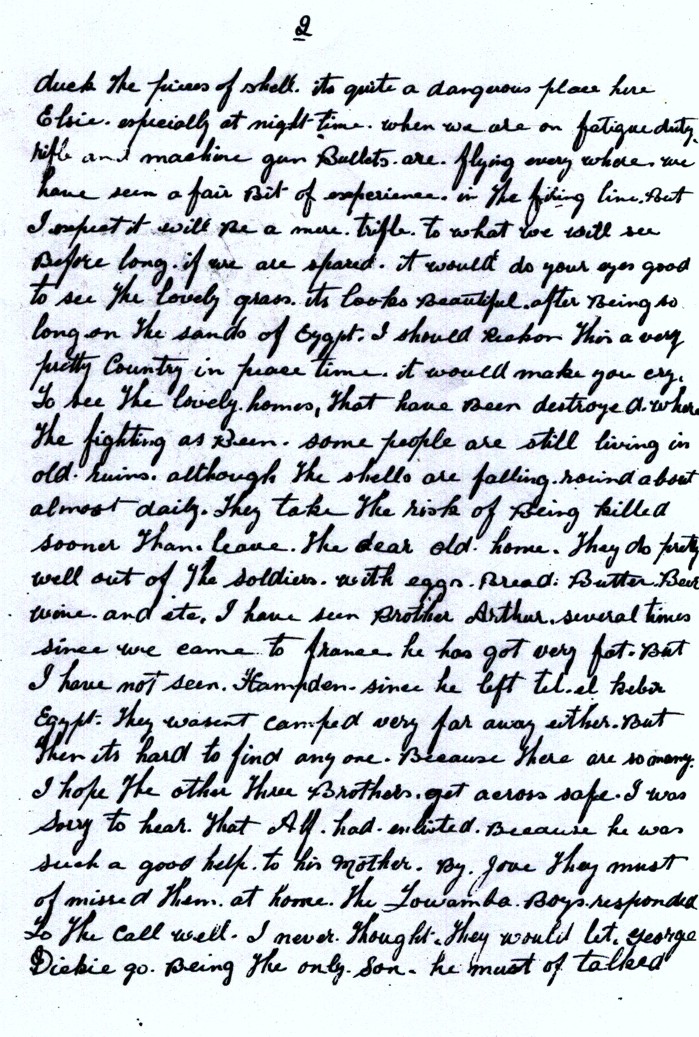 2
duck the pieces of shell. its quite a dangerous place here
Elsie. especially at night time. when we are on fatigue duty.
rifle and machine gun Bullets. are. flying every where. we
have seen a fair Bit of experience. in the firing line. But
I expect it will Be a mere. trifle. to what we will see
Before long. if we are spared. it would do your eyes good
to see the lovely grass. its looks Beautiful. after Being so
long on the sands of Egypt. I should Reckon this a very
pretty Country in peace time. it would make you cry.
To see the lovely homes, that have Been destroyed. where
the fighting as Been. some people are still living in
old ruins. although the shells are falling. round about
almost daily. They take the risk of Being killed
sooner than. leave. the dear old home. They do pretty
well out of the soldiers. with eggs. Bread. Butter. Beer
wine. and etc, I have seen Brother Arthur. several times
since we came to france. he has got very fat. But
I have not seen. Hampden. since he left tel. el kebir
Egypt. They wasent camped very far away either. But
then its hard to find any one. Because there are so many.
I hope the other three Brothers. get across safe. I was
sorry to hear. that Alf. had. enlisted. Because he was
such a good help. to his Mother. By. Jove they must
of missed them. at home. the Towamba. Boys. responded
To the call well. I never. thought. they would let. George
Dickie go. Being the only. Son. he must of talked